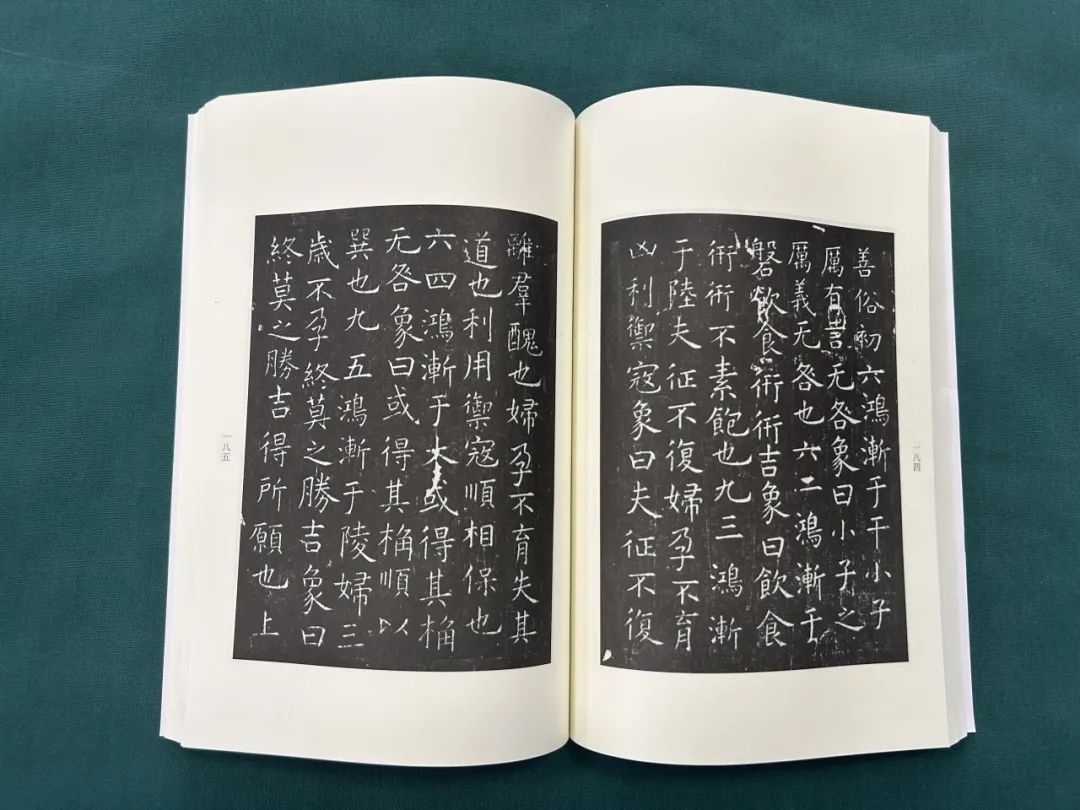 善俗初六鴻漸于干小子
厲有言无咎象曰小子之
厲義无咎也六二鴻漸于
磐飲食衎衎吉象曰飲食
衎衎不素飽也九三鴻漸
于陸夫征不復婦孕不育
凶利禦寇象曰夫征不復
一八四
離羣醜也婦孕不育失其
道也利用禦寇順相保也
六四鴻漸于木或得其桷
无咎象曰或得其桷順以
巽也九五鴻漸于陵婦三
歲不孕終莫之勝吉象曰
終莫之勝吉得所願也上
一八五